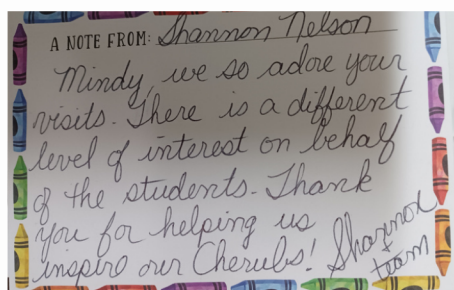 A NOTE FROM: Shannon Nelson
Mindy, we so adore your
visits. There is a different
level of interest on behalf
of the students. Thank
you for helping us
inspire our Cherubs! Shannon
+
team